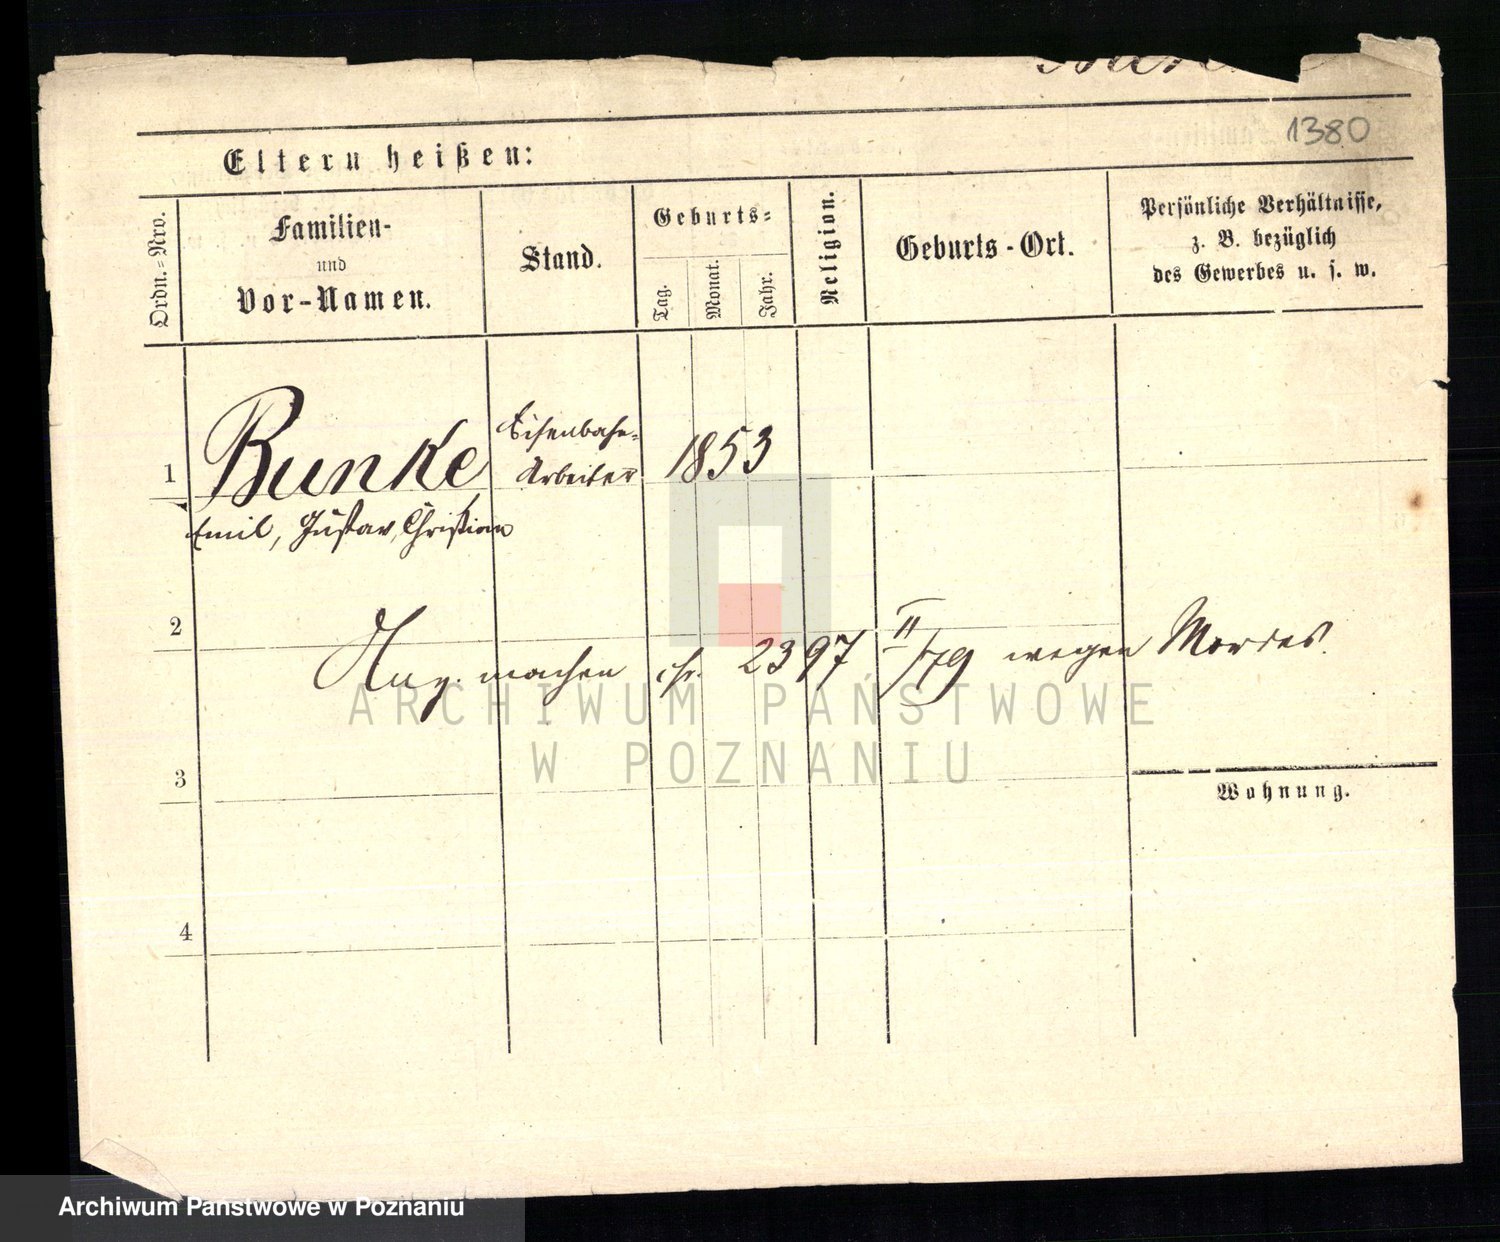 1380
Eltern heißen:
Ordn.-Nro.
Familien-
und
Vor-Namen.
Stand.
Geburts-
Tag.
Monat.
Jahr.
Religion.
Geburts-Ort.
Persönliche Verhältnisse,
z. B. bezüglich
des Gewerbes u. s. w.
1
Bunke
Eisenbahn-
Arbeiter
1853
Emil, Gustav, Christian
2
machen 2397 II/79 wegen Mordes.
ARCHIWUM PAŃSTWOWE
W POZNANIU
3
Wohnung.
4
Archiwum Państwowe w Poznaniu